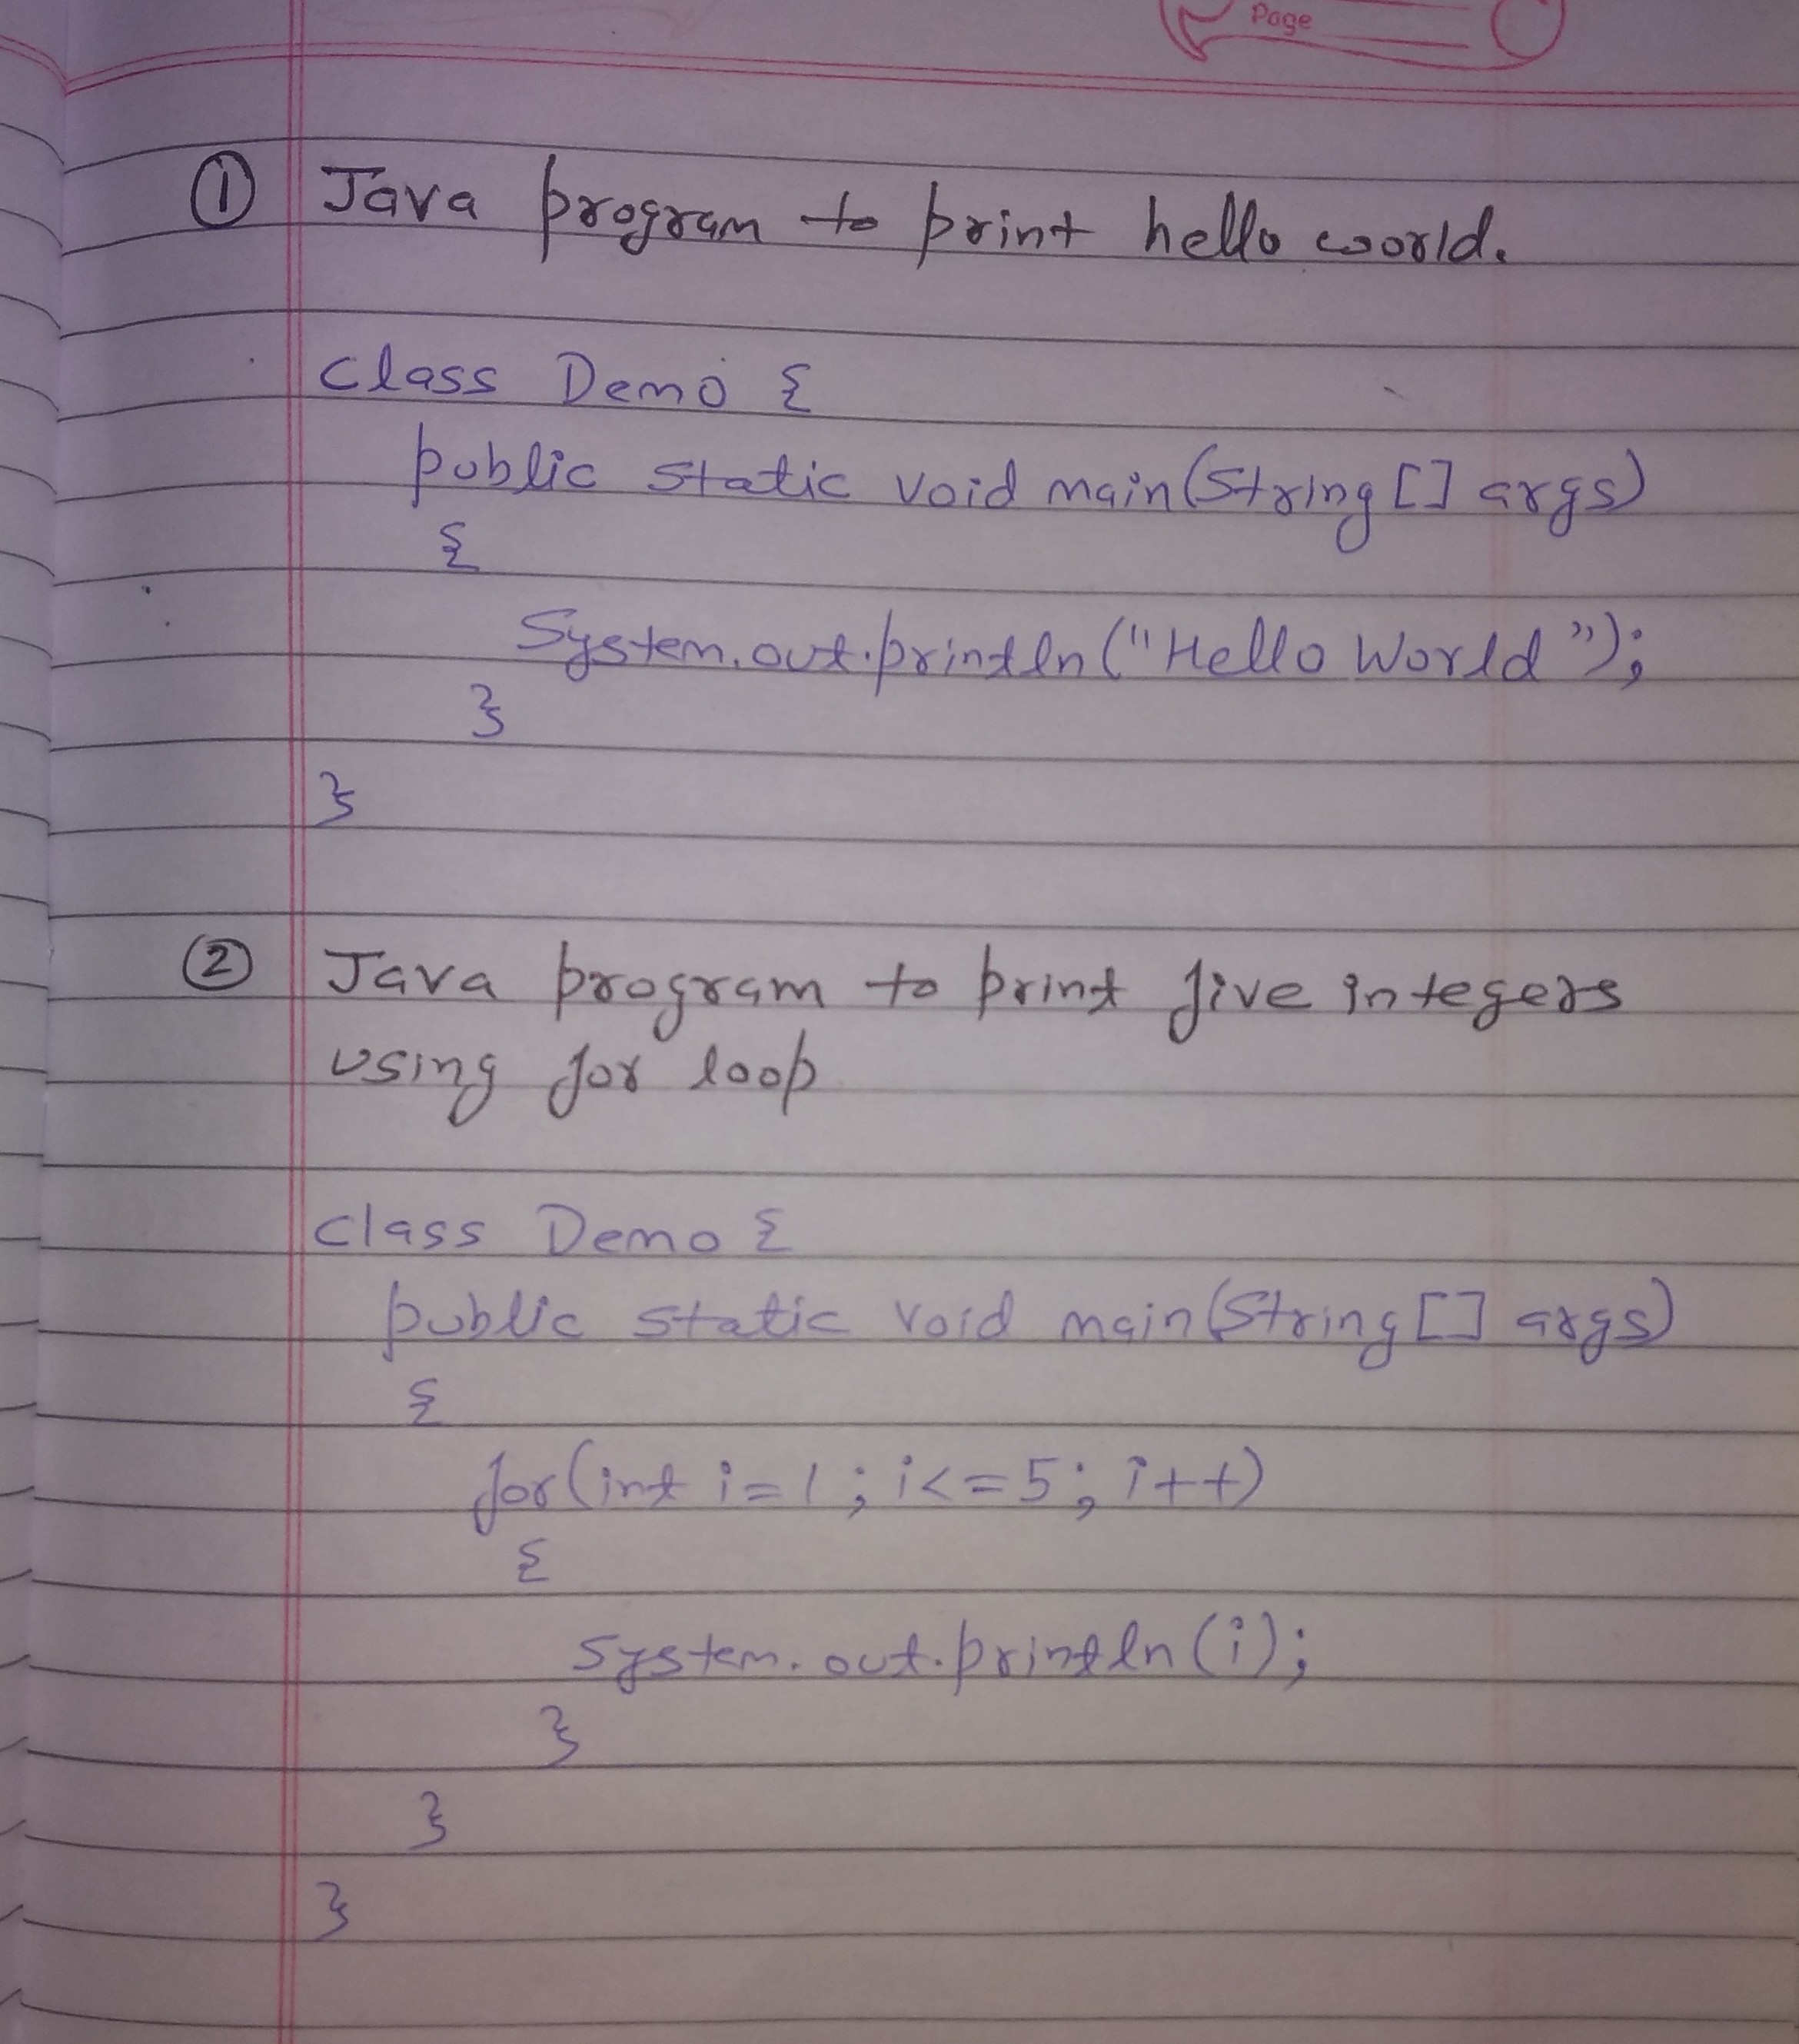 Page
① Java program to print hello world.
class Demo {
public static void main(String [] args)
{
System.out.println("Hello World");
}
}
② Java program to print five integers
using for loop
class Demo {
public static void main(String [] args)
{
for(int i=1; i<=5; i++)
{
System.out.println(i);
}
}
}